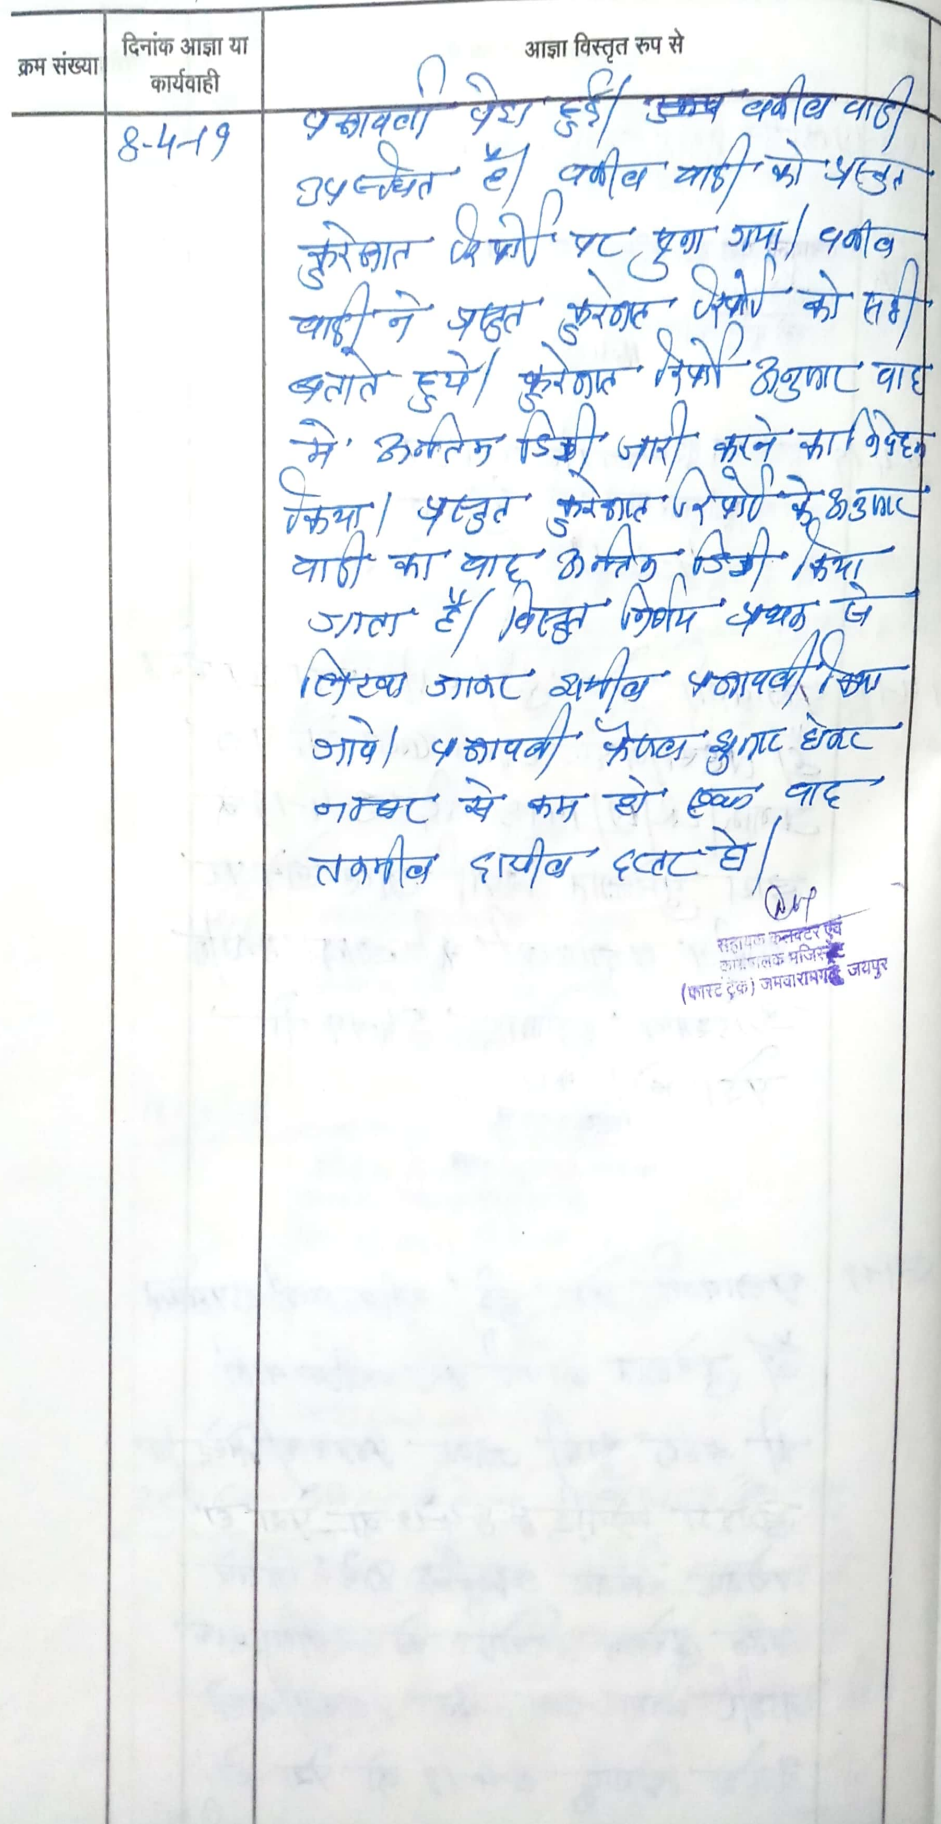 क्रम संख्या
दिनांक आज्ञा या
कार्यवाही
आज्ञा विस्तृत रुप से
8-4-19
पत्रावली पेश हुई। वकील वादी
उपस्थित है। वकील वादी को प्रस्तुत
कुरेजात रिपोर्ट पर सुना गया। वकील
वादी ने प्रस्तुत कुरेजात रिपोर्ट को सही
बताते हुये। कुरेजात रिपोर्ट अनुसार वाद
मे अन्तिम डिक्री जारी करने का निवेदन
किया। प्रस्तुत कुरेजात रिपोर्ट के अनुसार
वादी का वाद अन्तिम डिक्री किया
जाता है। विस्तृत निर्णय प्रथक से
लिखा जाकर शामील पत्रावली किया
जावे। पत्रावली फैसल शुमार होकर
नम्बर से कम हो वाद
तकमील दाखील दफ्तर हो।
सहायक कलक्टर एवं
कार्यपालक मजिस्ट्रेट
(फास्ट ट्रेक) जमवारामगढ़ जयपुर